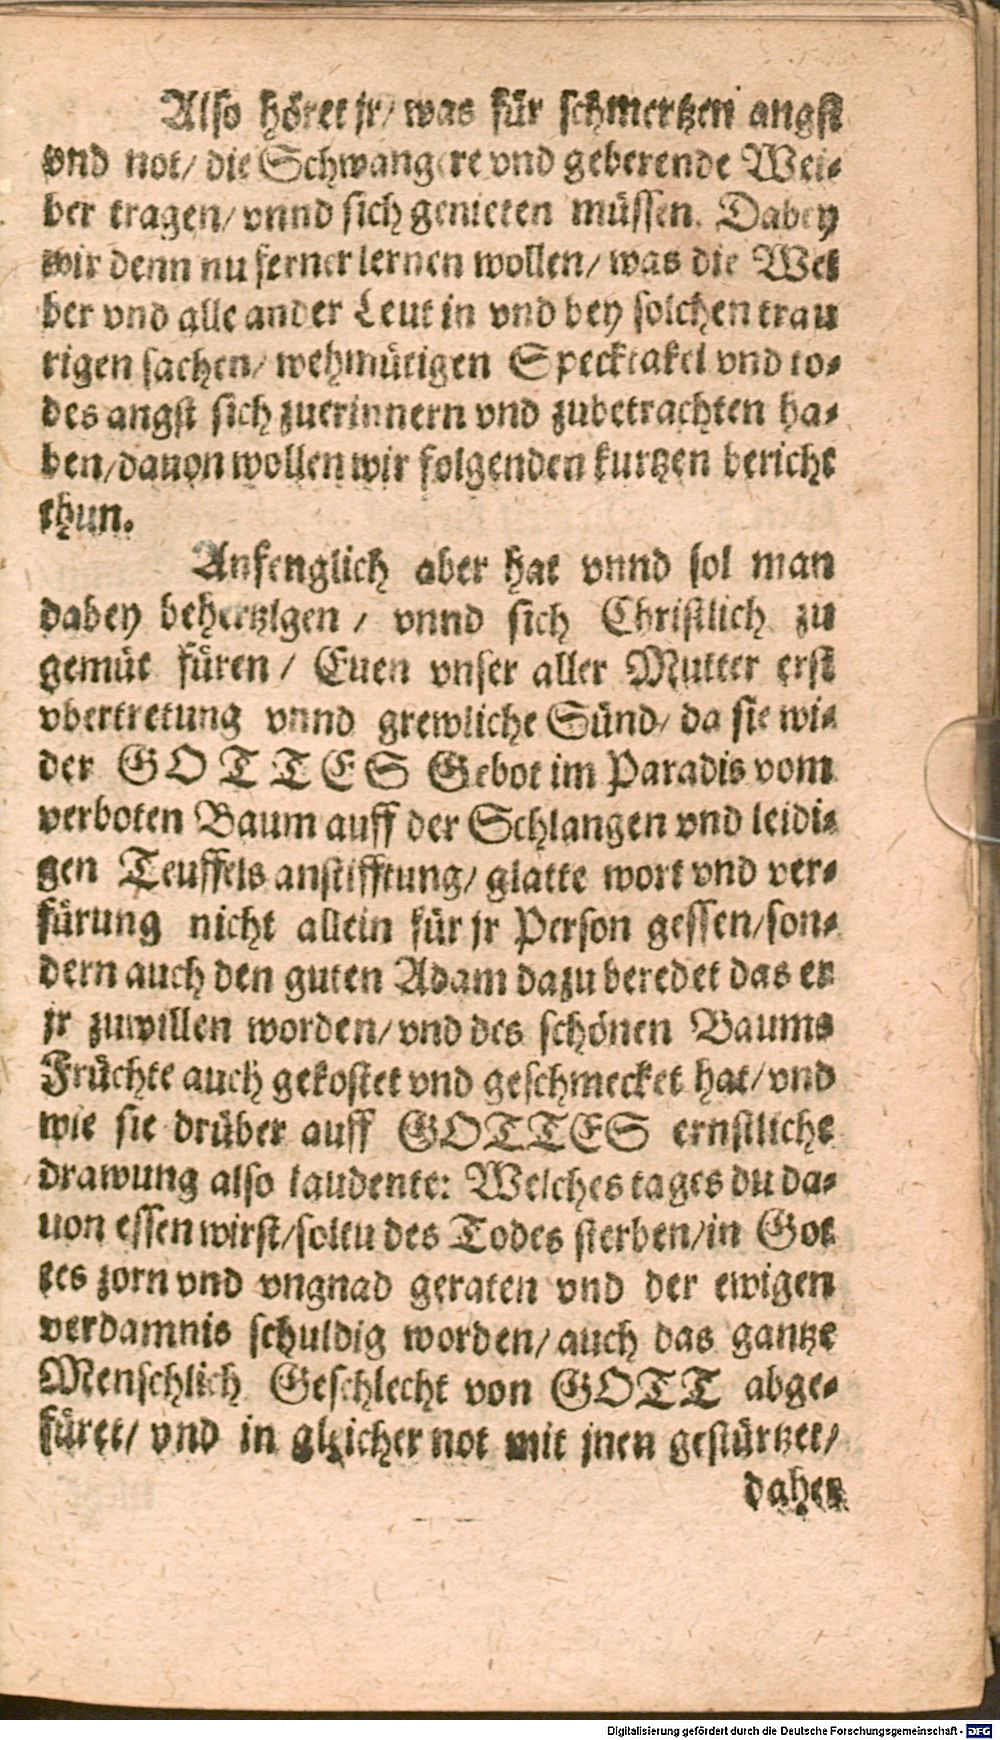 Also höret jr/ was für schmertzen angst
vnd not/ die Schwangere vnd geberende Wei-
ber tragen/ vnnd sich genieten müssen. Dabey
wir denn nu ferner lernen wollen/ was die Wei
ber vnd alle ander Leut in vnd bey solchen trau
rigen sachen/ wehmütigen Specktakel vnd to-
des angst sich zuerinnern vnd zubetrachten ha-
ben/dauon wollen wir folgenden kurtzen bericht
thun.
Anfenglich aber hat vnnd sol man
dabey behertzigen / vnnd sich Christlich zu
gemüt füren / Euen vnser aller Mutter erst
vbertretung vnnd grewliche Sünd/ da sie wi-
der GOTTES Gebot im Paradis vom
verboten Baum auff der Schlangen vnd leidi-
gen Teuffels anstifftung/ glatte wort vnd ver-
fürung nicht allein für jr Person gessen/son-
dern auch den guten Adam dazu beredet das er
jr zuwillen worden/ vnd des schönen Baums
Früchte auch gekostet vnd geschmecket hat/ vnd
wie sie drüber auff GOTTES ernstliche
drawung also laudente: Welches tages du da-
uon essen wirst/soltu des Todes sterben/in Got
tes zorn vnd vngnad geraten vnd der ewigen
verdamnis schuldig worden/ auch das gantze
Menschlich Geschlecht von GOTT abge-
füret/ vnd in gleicher not mit jnen gestürtzet/
daher
Digitalisierung gefördert durch die Deutsche Forschungsgemeinschaft - DFG